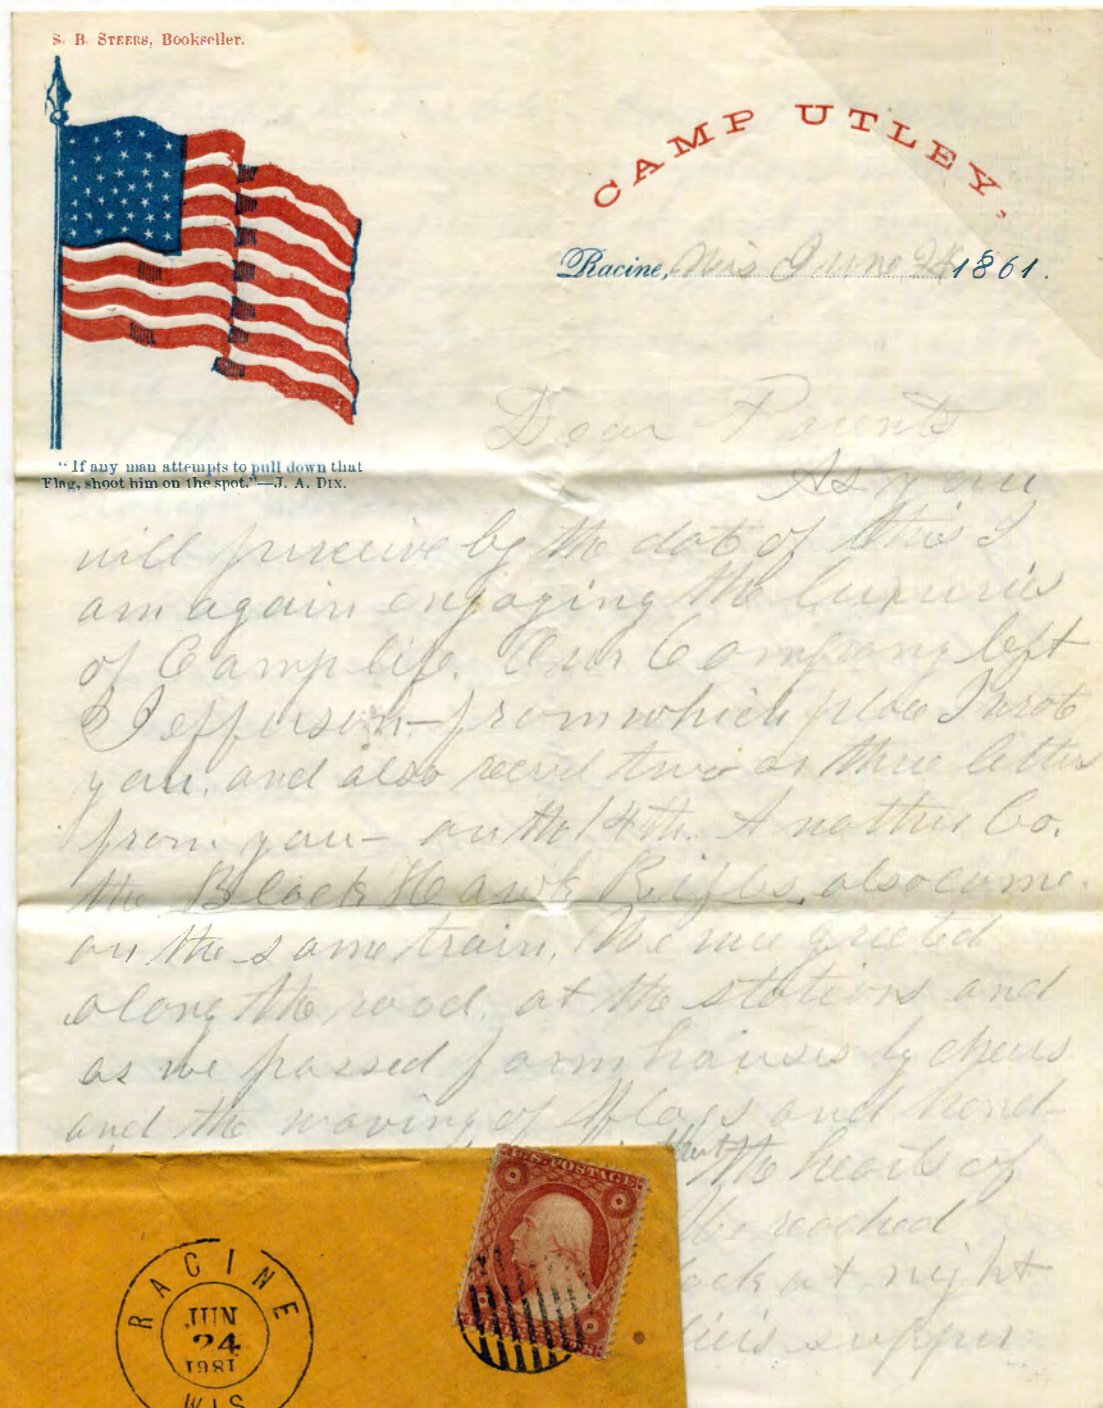 S. B. STEERS, Bookseller.
CAMP UTLEY,
Racine, Wis June 24 1861.
"If any man attempts to pull down that
Flag, shoot him on the spot."—J. A. DIX.
Dear Parents
As you
will perceive by the date of this I
am again engoging the luxuries
of Camp life. Our Company left
Jefferson—from which place I wrote
you, and also recvd two or three letters
from you— on the 14th. Another Co.
the Black Hawk Rifles, also came
on the same train. We were greeted
along the road, at the stations and
as we passed farm houses by cheers
and the waving of flags and hand-
that the hearts of
We reached
ock at night
supper
U.S. POSTAGE
RACINE
JUN
24
1981
WIS